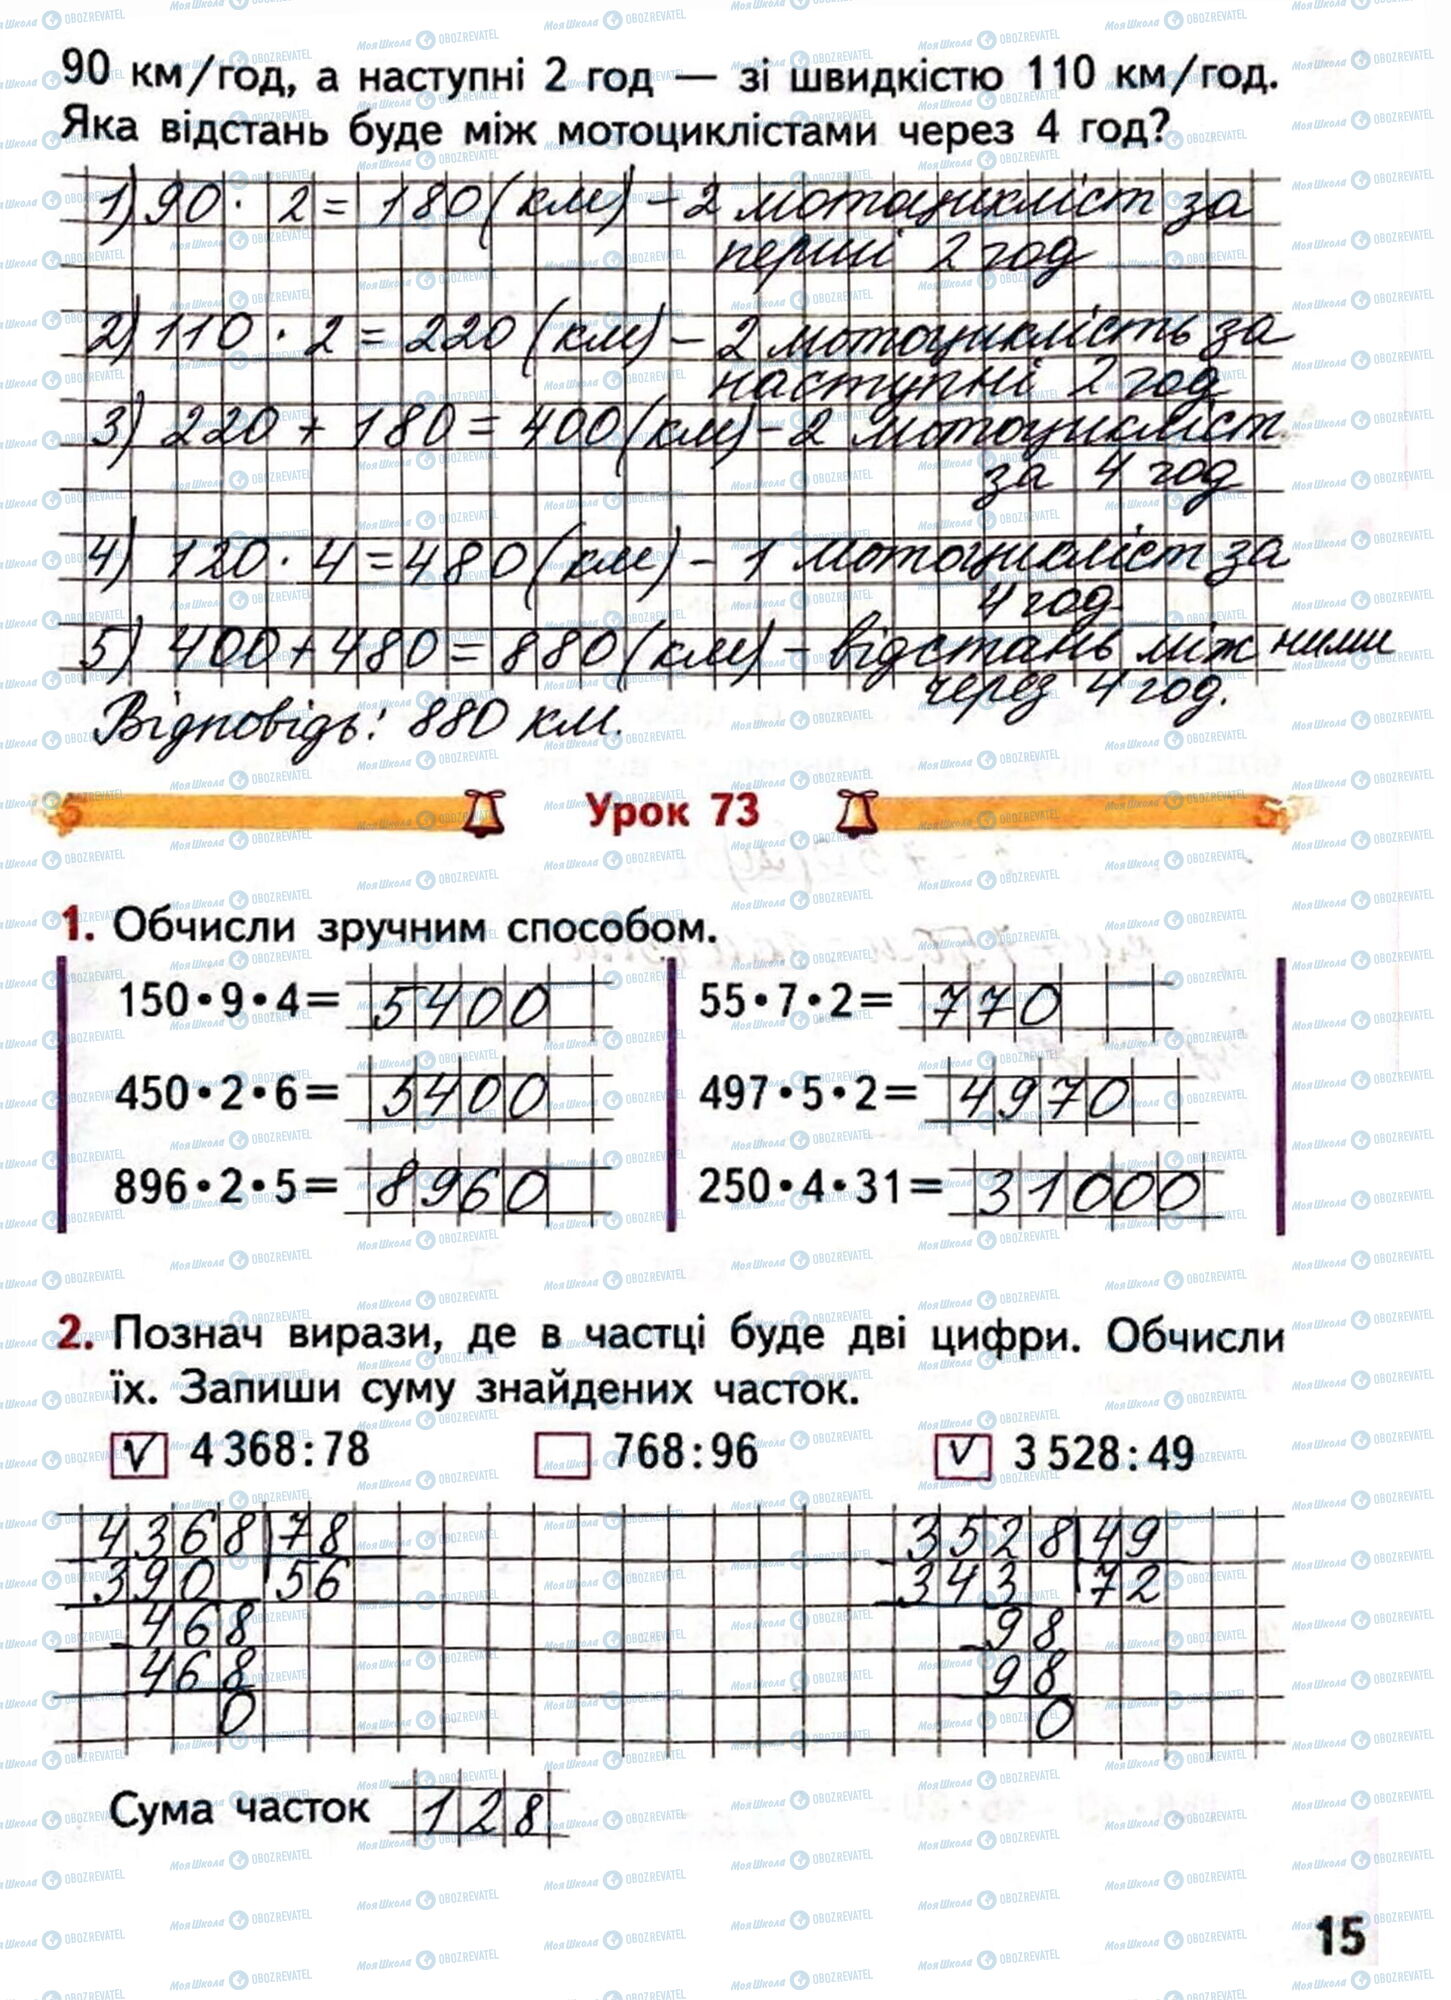 90 км/год, а наступні 2 год — зі швидкістю 110 км/год.
Яка відстань буде між мотоциклістами через 4 год?
1) 90 · 2 = 180 (км) – 2 мотоцикліст за
перші 2 год
2) 110 · 2 = 220 (км) – 2 мотоциклість за
наступні 2 год
3) 220 + 180 = 400 (км) – 2 мотоцикліст
за 4 год
4) 120 · 4 = 480 (км) – 1 мотоцикліст за
4 год
5) 400 + 480 = 880 (км) – відстань між ними
через 4 год.
Відповідь: 880 км.
Урок 73
1. Обчисли зручним способом.
150 • 9 • 4 = 5400
55 • 7 • 2 = 770
450 • 2 • 6 = 5400
497 • 5 • 2 = 4970
896 • 2 • 5 = 8960
250 • 4 • 31 = 31000
2. Познач вирази, де в частці буде дві цифри. Обчисли
їх. Запиши суму знайдених часток.
V 4 368 : 78
768 : 96
V 3 528 : 49
4368 78
390 56
468
468
0
3528 49
343 72
98
98
0
Сума часток 128
15
МояШкола OBOZREVATEL